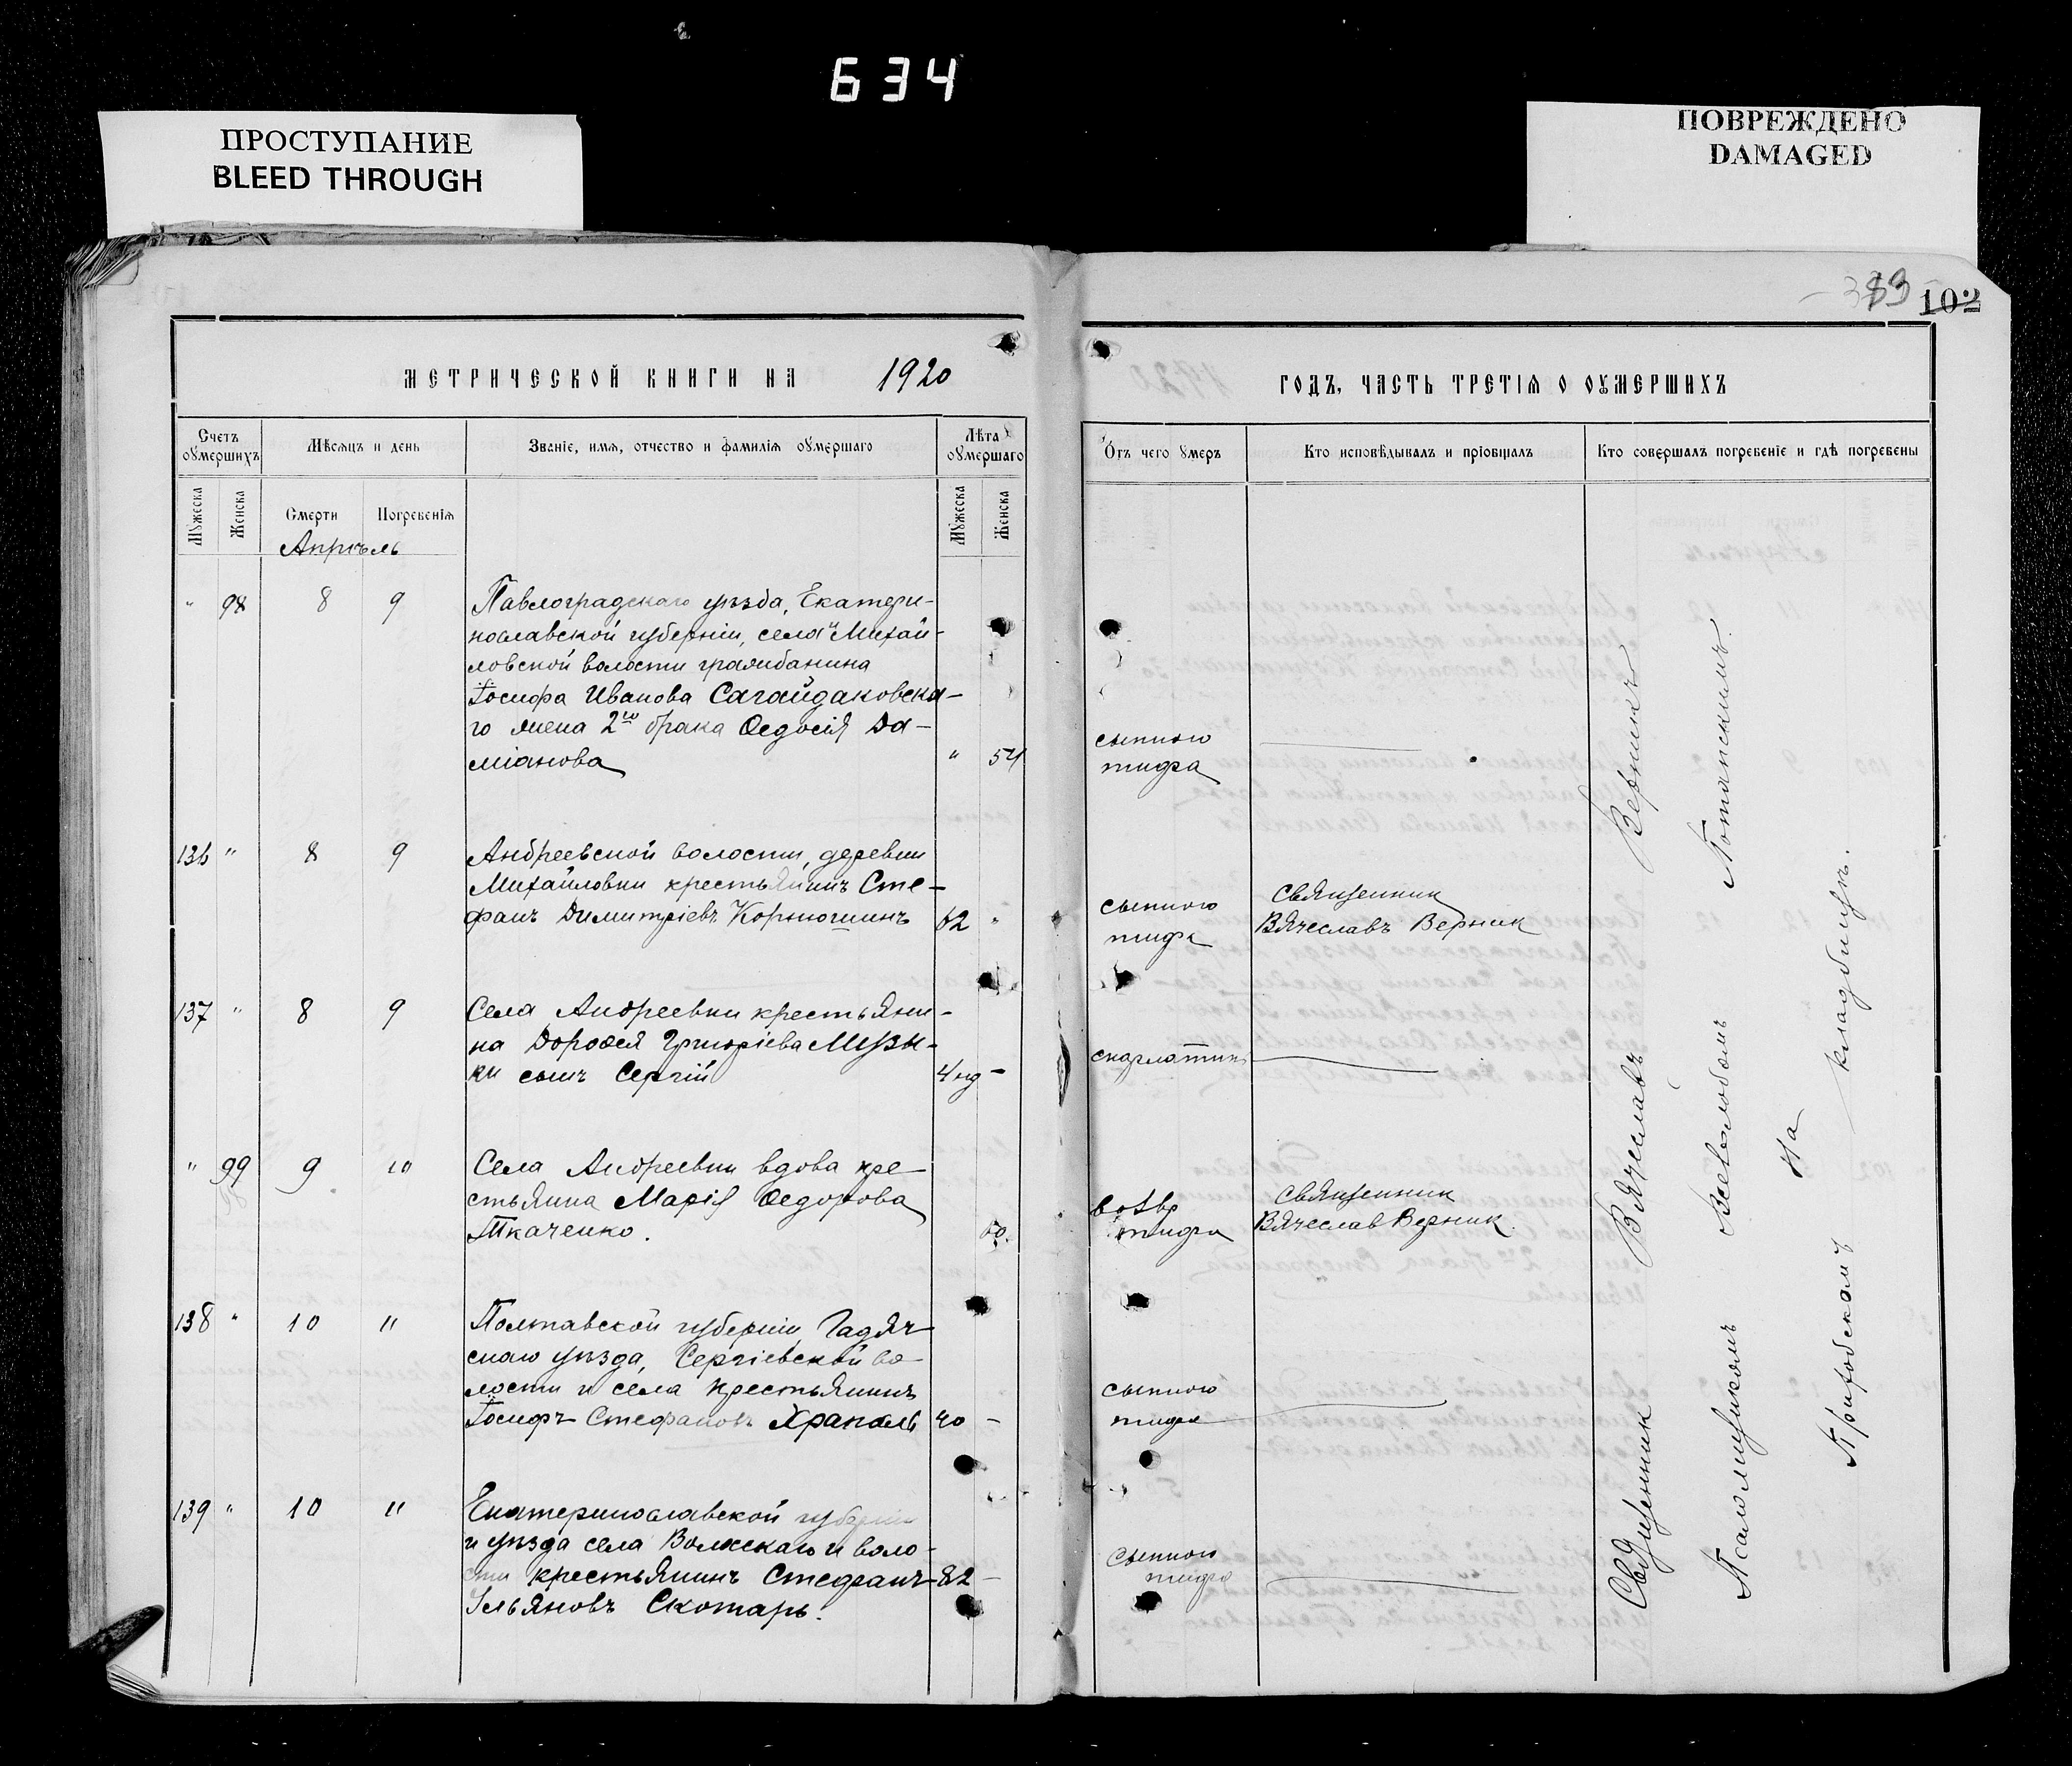 634
ПРОСТУПАНИЕ
BLEED THROUGH
ПОВРЕЖДЕНО
DAMAGED
102
МЕТРИЧЕСКОЙ КНИГИ НА 1920
ГОДЪ, ЧАСТЬ ТРЕТІЯ О ОУМЕРШИХЪ
Счетъ оумершихъ
Мѣсяцъ и день
Званіе, имя, отчество и фамилія оумершаго
Лѣта оумершаго
Отъ чего умеръ
Кто исповѣдывалъ и пріобщалъ
Кто совершалъ погребеніе и гдѣ погребены
Мужеска
Женска
Смерти
Погребенія
Мужеска
Женска
Апрѣль
" 98 8 9 Павлоградскаго уѣзда, Екатери-
нославской губерніи, села и Михай-
ловской волости гражданина
Іосифа Иванова Сагайдаковска-
го жена 2го брака Ѳедосія Да-
міанова " 54
сыпного
тифа
136 " 8 9 Андреевской волости, деревни
Михайловки крестьянинъ Сте-
фанъ Димитріевъ Корнюшинъ 62 "
сыпного
тифа
священник
Вячеславъ Верник
137 " 8 9 Села Андреевки крестьяни-
на Дороѳея Григоріева Музы-
ки сынъ Сергій 4 нд -
скарлатины
" 99 9 10 Села Андреевки вдова кре-
стьянина Марія Ѳедорова
Ткаченко. 60.
возвр
тифа
священник
Вячеслав Верник.
138 " 10 11 Полтавской губерніи, Гадяч
скаго уѣзда, Сергіевской во-
лости и села крестьянинъ
Іосифъ Стефановъ Храпаль 40 -
сыпного
тифа
139 " 10 11 Екатеринославской губерніи
и уѣзда села Волжскаго и воло-
сти крестьянинъ Стефанъ 82 -
Ульяновъ Скотарь.
сыпного
тифа
Священник Вячеславъ Верникъ
Псаломщикомъ Всеволодомъ Потапскимъ
На
Приходскомъ кладбищѣ.